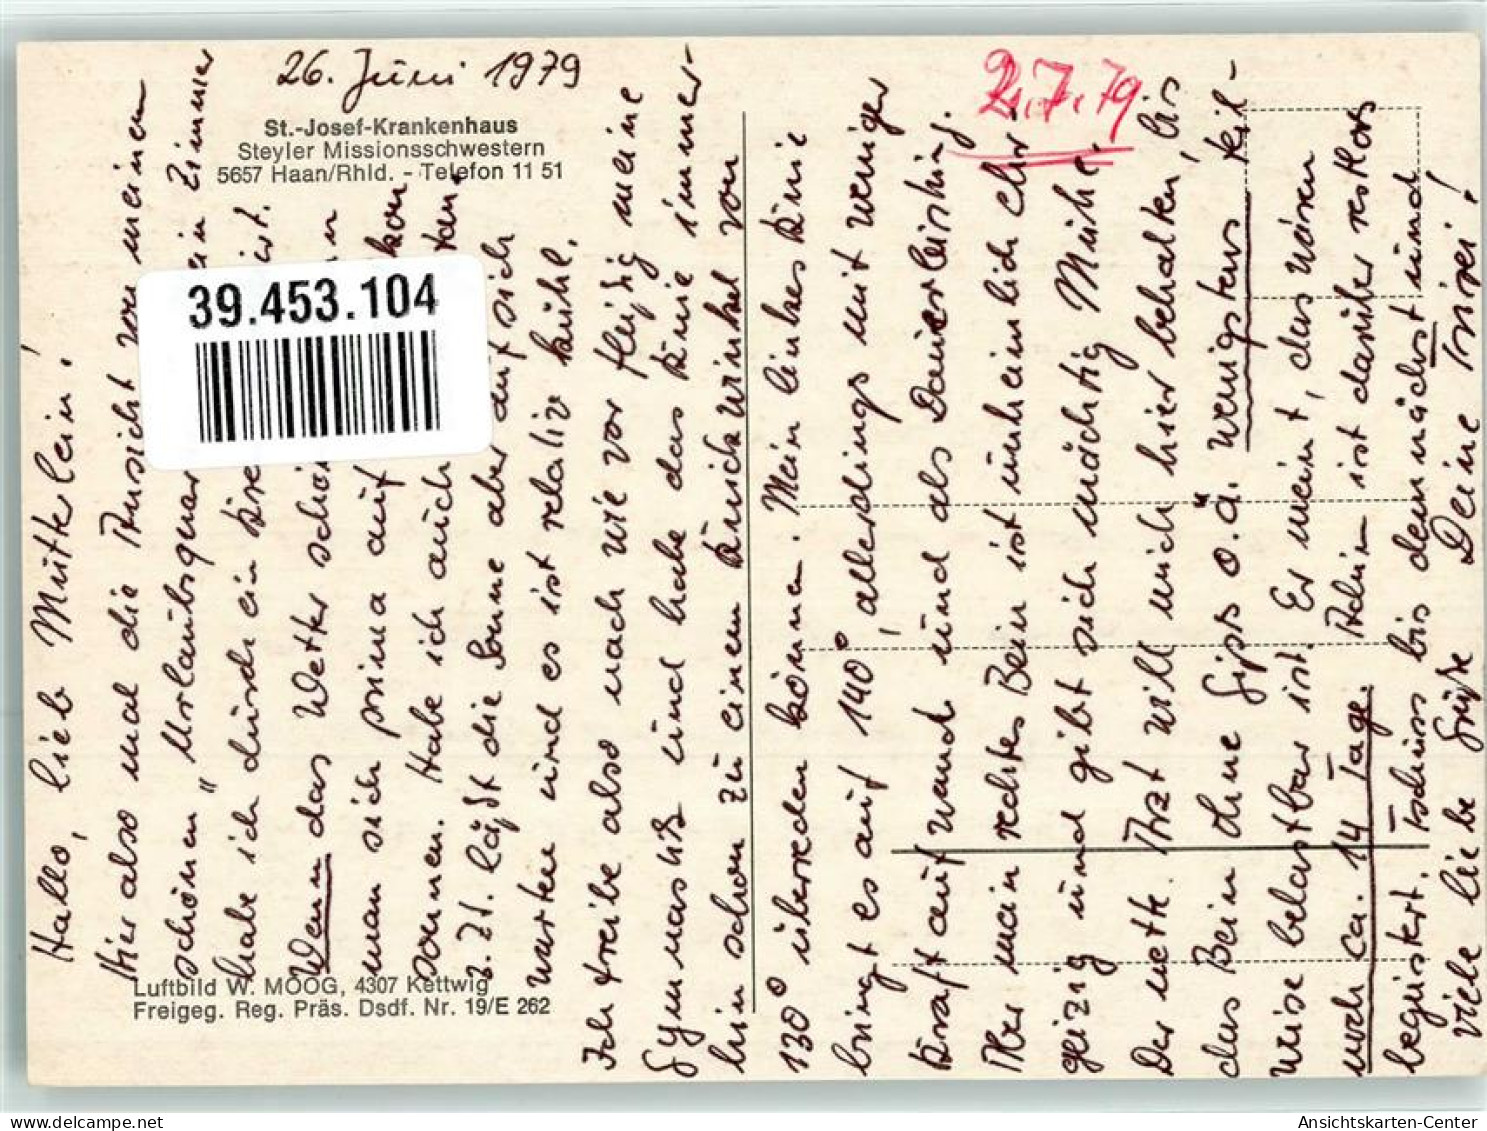 26. Juni 1979
St.-Josef-Krankenhaus
Steyler Missionsschwestern
5657 Haan/Rhld. - Telefon 11 51
2.7.79
39.453.104
Hallo, lieb Mütterlein!
Hier also mal die Ansicht von meinem
schönen „Urlaubsquar ein Zimmer
habe ich durch ein Kre ist.
Wenn das Wetter schön n
man sich prima auf kon
sonnen. Habe ich auch
z. Zt. läßt die Sonne aber auf sich
warten und es ist relativ kühl.
Ich treibe also nach wie vor fleißig meine
Gymnastik und habe das Knie immer-
hin schon zu einem Knickwinkel von
130° überreden können. Mein linkes Knie
bringt es auf 140°, allerdings mit weniger
Kraftaufwand und als Dauerleistung.
Aber mein rechtes Bein ist unheimlich ehr-
geizig und gibt sich mächtig Mühe.
Der nette Arzt will mich hier behalten, bis
das Bein ohne Gips o.ä. wenigstens teil-
weise belastbar ist. Er meint, das wären
noch ca. 14 Tage. Achim ist darüber restlos
begeistert. Tschüss bis demnächst und
viele liebe Grüße Deine
Luftbild W. MOOG, 4307 Kettwig
Freigeg. Reg. Präs. Dsdf. Nr. 19/E 262
delcampe.net
Ansichtskarten-Center